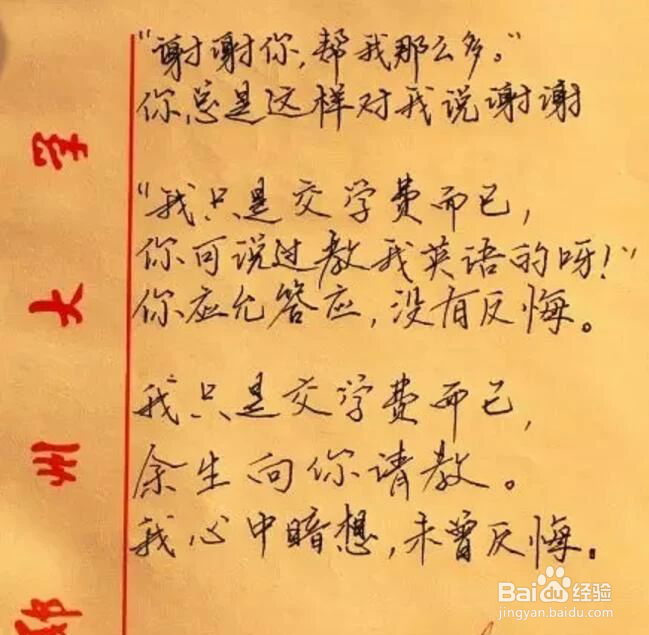 “谢谢你，帮我那么多。”
你总是这样对我说谢谢
“我只是交学费而已，
你可说过教我英语的呀！”
你应允答应，没有反悔。
我只是交学费而已，
余生向你请教。
我心中暗想，未曾反悔。
郑州大学
Baidu经验
jingyan.baidu.com